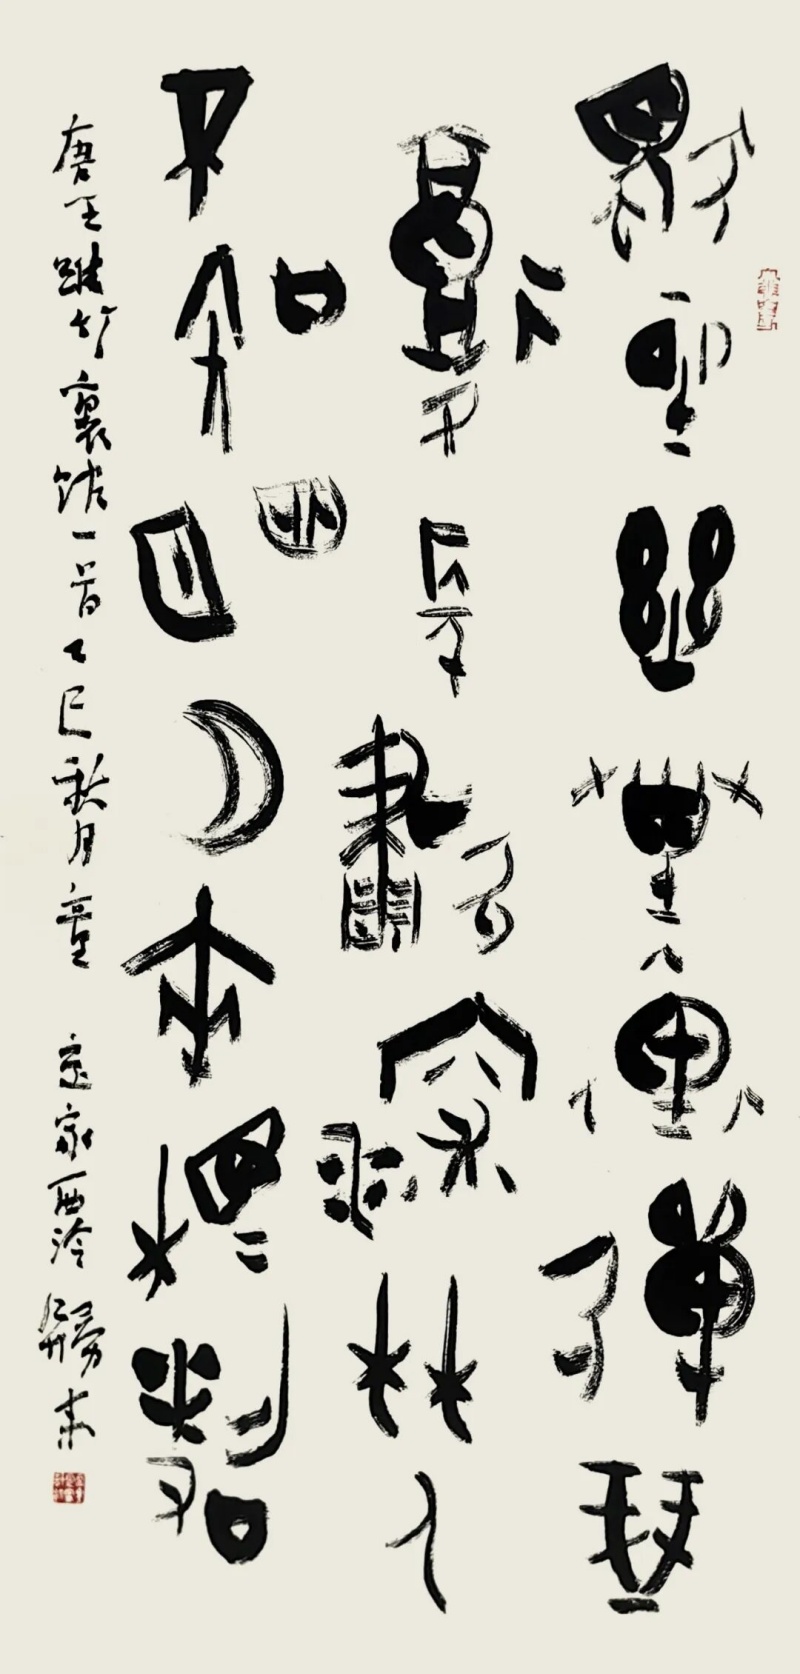 獨坐幽篁裏彈琴
復長嘯深林人
不知明月來相照
唐王維竹裏館一首乙巳秋月
家西泠